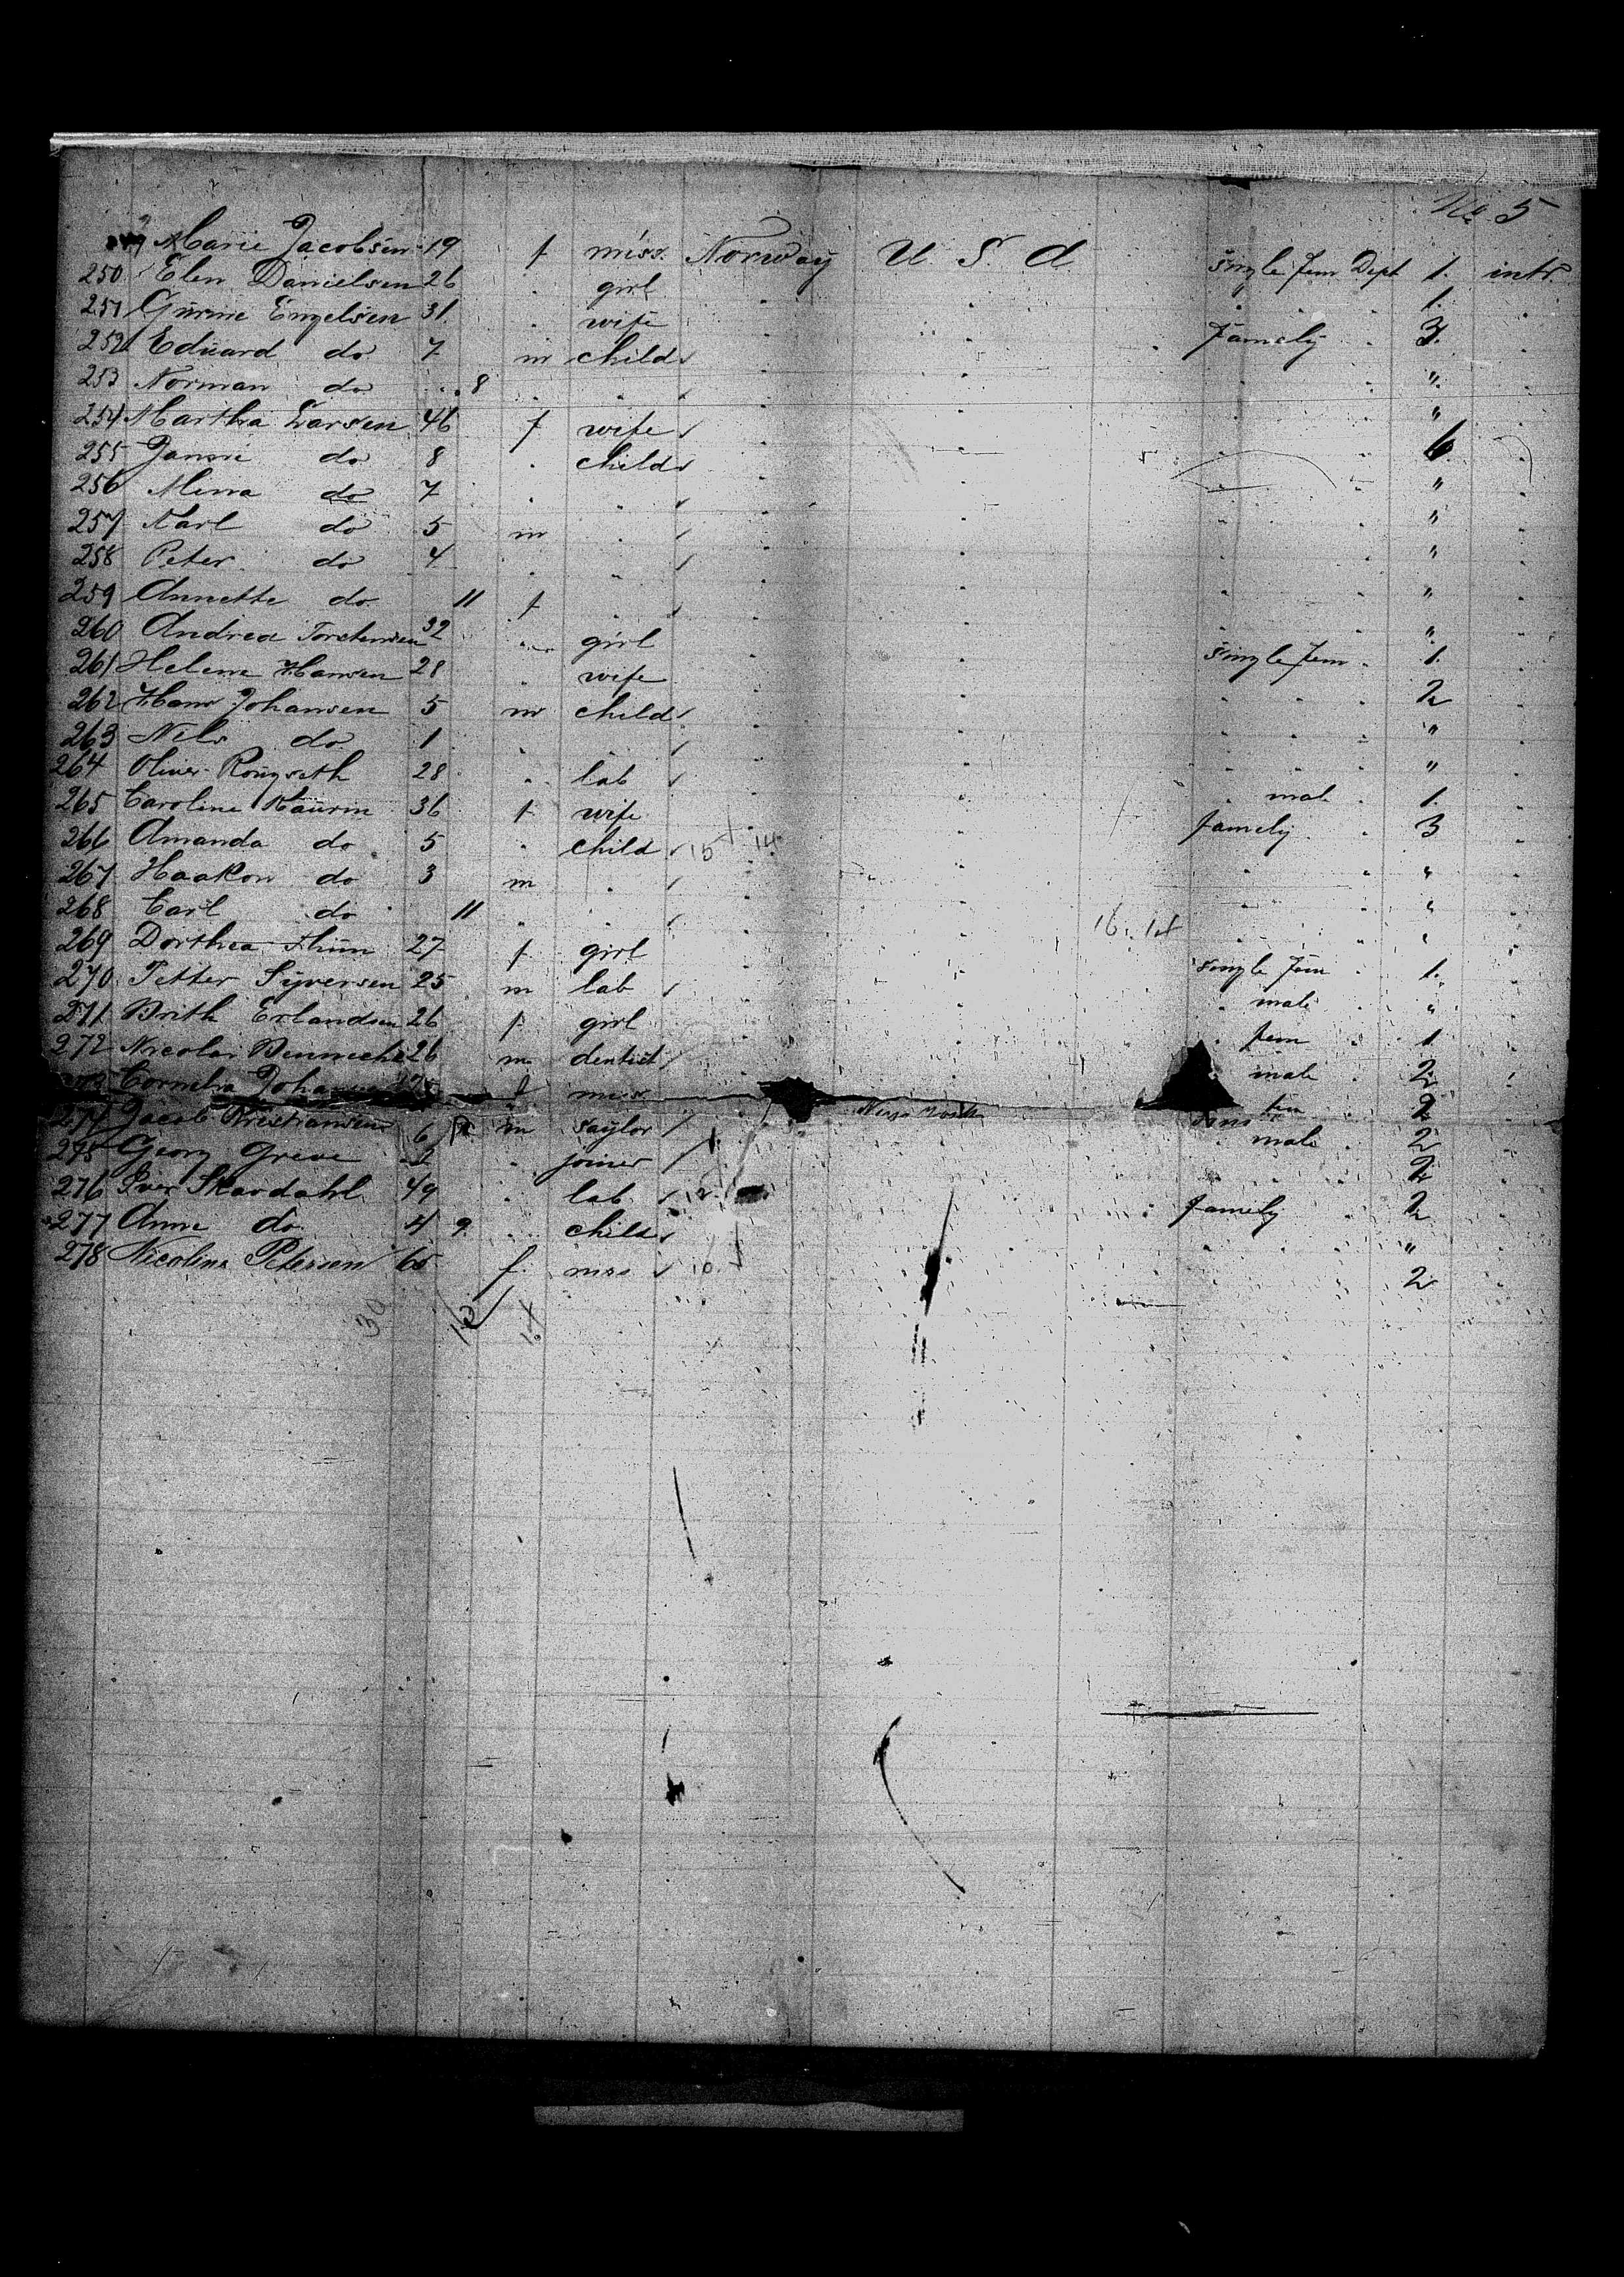 No. 5
Marie Jacobsen 19 f miss. Norway U. S. A. single fem Dept 1. intr.
250 Elen Danielsen 26 . girl . . . 1. .
251 Gurine Engelsen 31. . wife . . Famely . 3. .
252 Eduard do 7 m child . . . " .
253 Norman do 8 . . . . . " .
254 Martha Larsen 46 f wife . . . 6. .
255 Janne do 8 . child . . . " .
256 Mina do 7 . . . . . " .
257 Karl do 5 m . . . . " .
258 Peter do 4 . . . . . " .
259 Annette do 11 f . . . . " .
260 Andrea Torstensen 32 . girl . . single fem . 1. .
261 Helene Hansen 28 . wife . . . 2 .
262 Hans Johansen 5 m child . . . " .
263 Nils do 1 . . . . . " .
264 Oliver 28 . lab . . . male . 1. .
265 Caroline 36 f wife . . famely . 3 .
266 Amanda do 5 . child 15 14 . . . " .
267 Haakon do 3 m . . . . " .
268 Carl do 11 . . . . . " .
16. 14
269 Dorthea Thun 27 f girl . . single fem . 1. .
270 Petter Syversen 25 m lab . . . male . " .
271 Brith Erlandsen 26 f girl . . . fem . 1 .
272 Nicolai 26 m dentist . . male . 2 .
Cornelia f miss fem 2
274 Jacob Kristiansen 6 m saylor New York male . 2
275 Georg Greve 2 . joiner . 2
276 Iver Skardahl 49 . lab 12 famely . 2
277 Anne do 4 9 . child . "
278 Nicoline Petersen 65 f. mrs 10 2
30 16 14